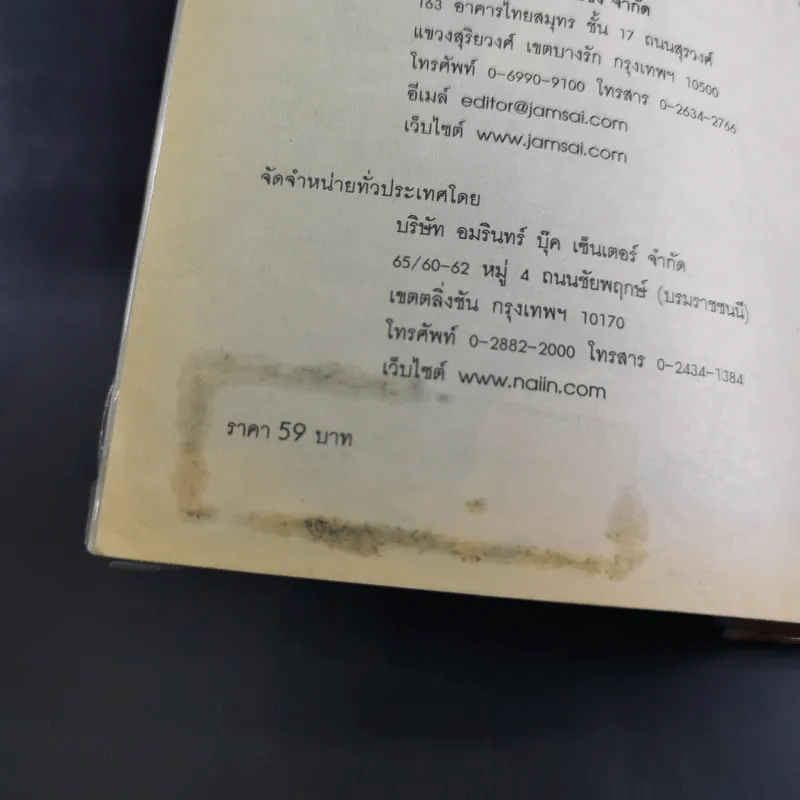 จำกัด
163 อาคารไทยสมุทร ชั้น 17 ถนนสุรวงศ์
แขวงสุริยวงศ์ เขตบางรัก กรุงเทพฯ 10500
โทรศัพท์ 0-6990-9100 โทรสาร 0-2634-2766
อีเมล์ editor@jamsai.com
เว็บไซต์ www.jamsai.com
จัดจำหน่ายทั่วประเทศโดย
บริษัท อมรินทร์ บุ๊ค เซ็นเตอร์ จำกัด
65/60-62 หมู่ 4 ถนนชัยพฤกษ์ (บรมราชชนนี)
เขตตลิ่งชัน กรุงเทพฯ 10170
โทรศัพท์ 0-2882-2000 โทรสาร 0-2434-1384
เว็บไซต์ www.naiin.com
ราคา 59 บาท